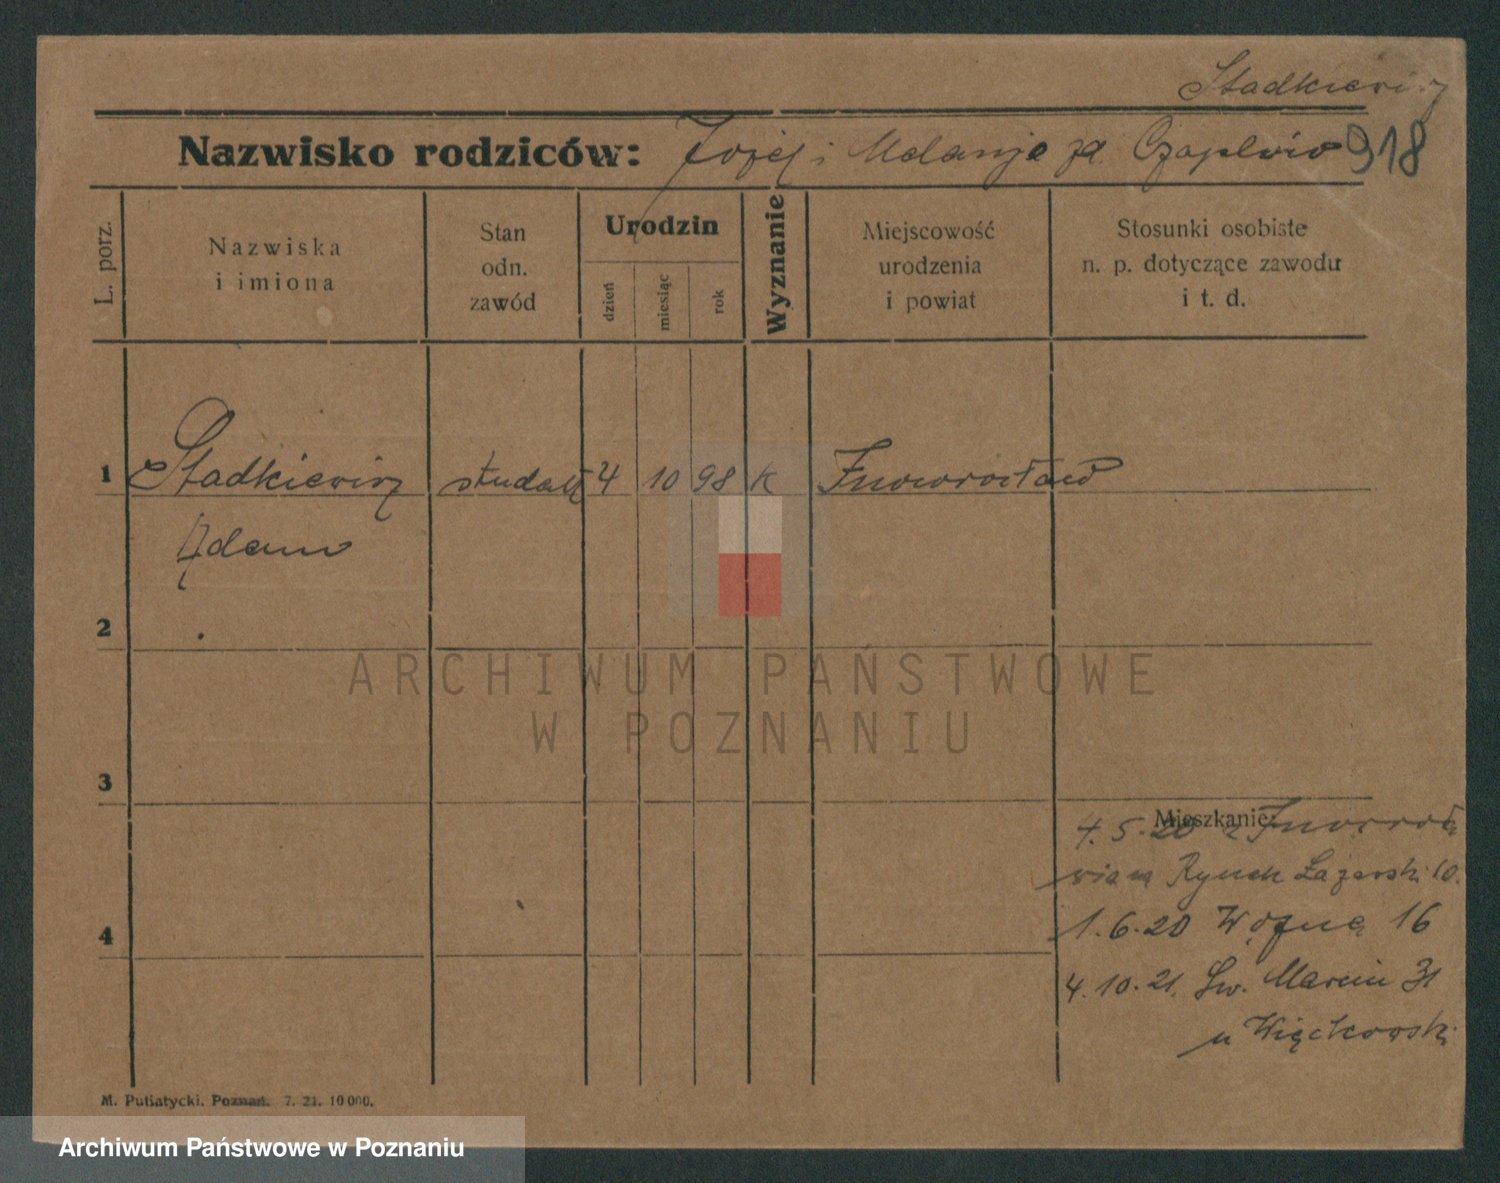 Stadkiewicz
Nazwisko rodziców: Józef i Melanja za Czaplów 918
L. porz.
Nazwiska
i imiona
Stan
odn.
zawód
Urodzin
dzień
miesiąc
rok
Wyznanie
Miejscowość
urodzenia
i powiat
Stosunki osobiste
n. p. dotyczące zawodu
i t. d.
1 Stadkiewicz student 4 10 98 K Inowrocław
Adam
2
3
Mieszkanie:
4.5.20 z Inowrocła
wia na Rynek Łazarski 10.
4
1.6.20 Woźna 16
4.10.21. Św. Marcin 31
u Więckowski
M. Putiatycki. Poznań. 7. 21. 10000.
ARCHIWUM PAŃSTWOWE
W POZNANIU
Archiwum Państwowe w Poznaniu